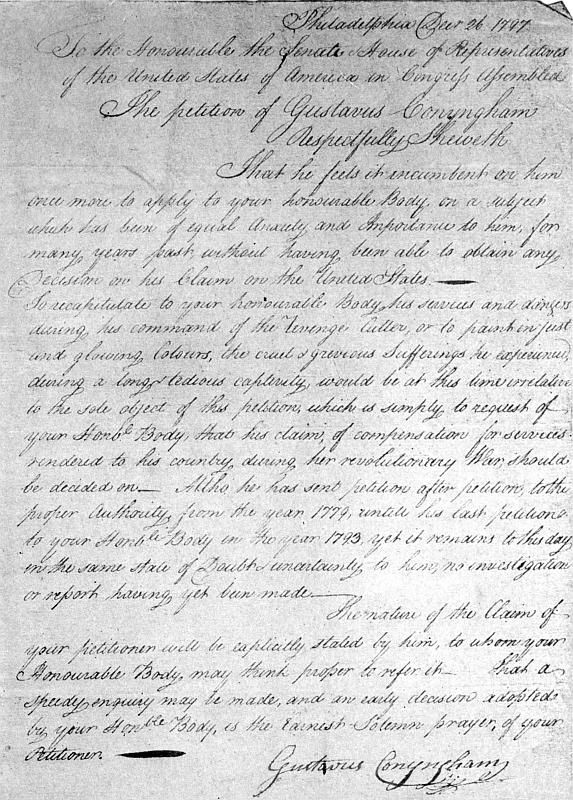 Philadelphia Decr 26 1797
To the Honourable the Senate & House of Representatives
of the United States of America in Congress Assembled
The petition of Gustavus Conyngham
Respectfully Sheweth
That he feels it incumbent on him
once more to apply to your honourable Body, on a subject
which has been of equal Anxiety and Importance to him, for
many years past, without having been able to obtain any
Decision on his Claim on the United States.
To recapitulate to your honourable Body, his services and dangers
during his command of the Revenge Cutter, or to paint in just
and glowing Colours, the cruel & grevious Sufferings he experienced,
during a long & tedious captivity, would be at this time irrelative
to the sole object of this petition, which is simply to request of
your Honble Body, that his claim, of compensation for services
rendered to his country, during her revolutionary War, should
be decided on — Altho he has sent petition after petition, to the
proper Authority, from the year 1779, untill his last petition
to your Honble Body in the year 1793, yet it remains to this day
in the same state of Doubt & uncertainty to him, no investigation
or report having yet been made —
The nature of the Claim of
your petitioner will be explicitly stated by him, to whom your
Honourable Body, may think proper to refer it — That a
speedy enquiry may be made, and an early decision adopted
by your Honble Body, is the Earnest Solemn prayer, of your
Petitioner.
Gustavus Conyngham